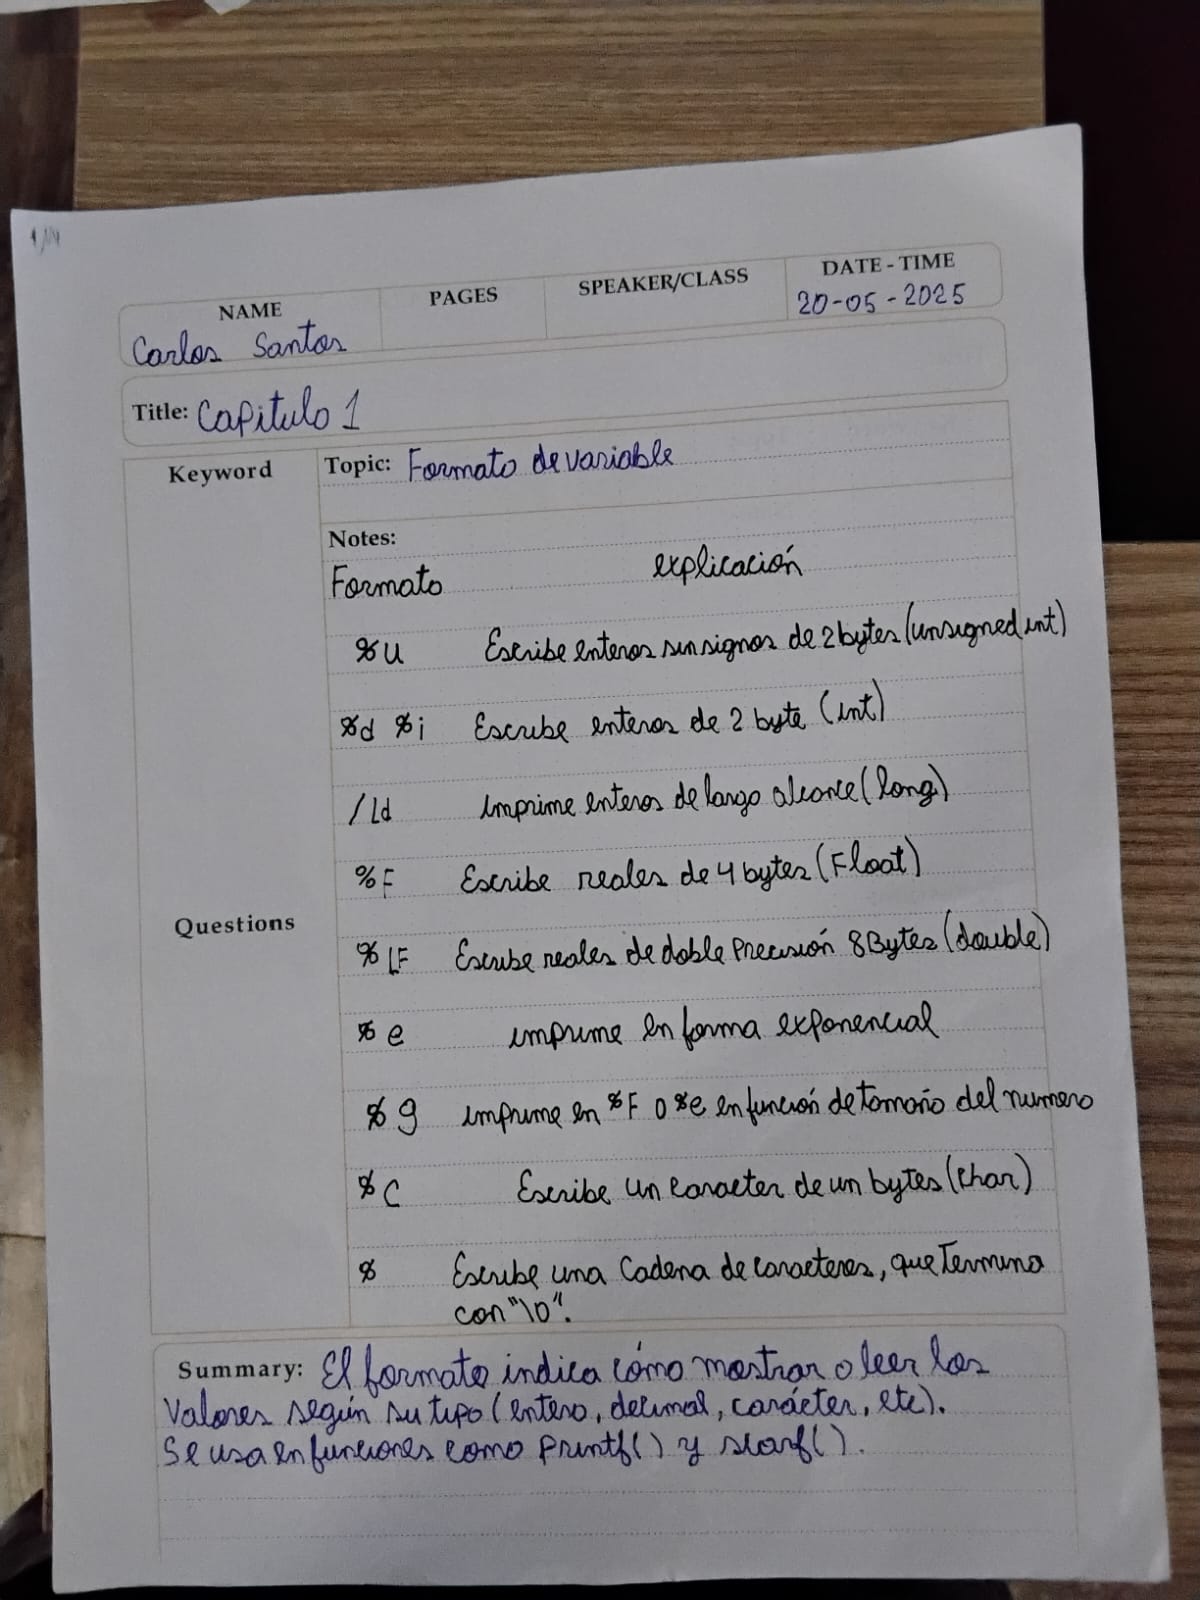 NAME PAGES SPEAKER/CLASS DATE - TIME
Carlos Santos 20-05-2025
Title: Capitulo 1
Keyword Topic: Formato de variable
Notes:
Formato explicación
%u Escribe enteros sin signos de 2 bytes (unsigned int)
%d %i Escribe enteros de 2 byte (int)
/Ld imprime enteros de largo alcance (long)
%F Escribe reales de 4 bytes (Float)
Questions
%LF Escribe reales de doble Precisión 8 Bytes (double)
%e imprime en forma exponencial
%g imprime en %F o %e en función de tamaño del numero
%C Escribe un caracter de un bytes (char)
% Escribe una Cadena de caracteres, que Termina
con "\0".
Summary: El formato indica cómo mostrar o leer los
Valores según su tipo (entero, decimal, carácter, etc).
Se usa en funciones como Printf() y scanf().